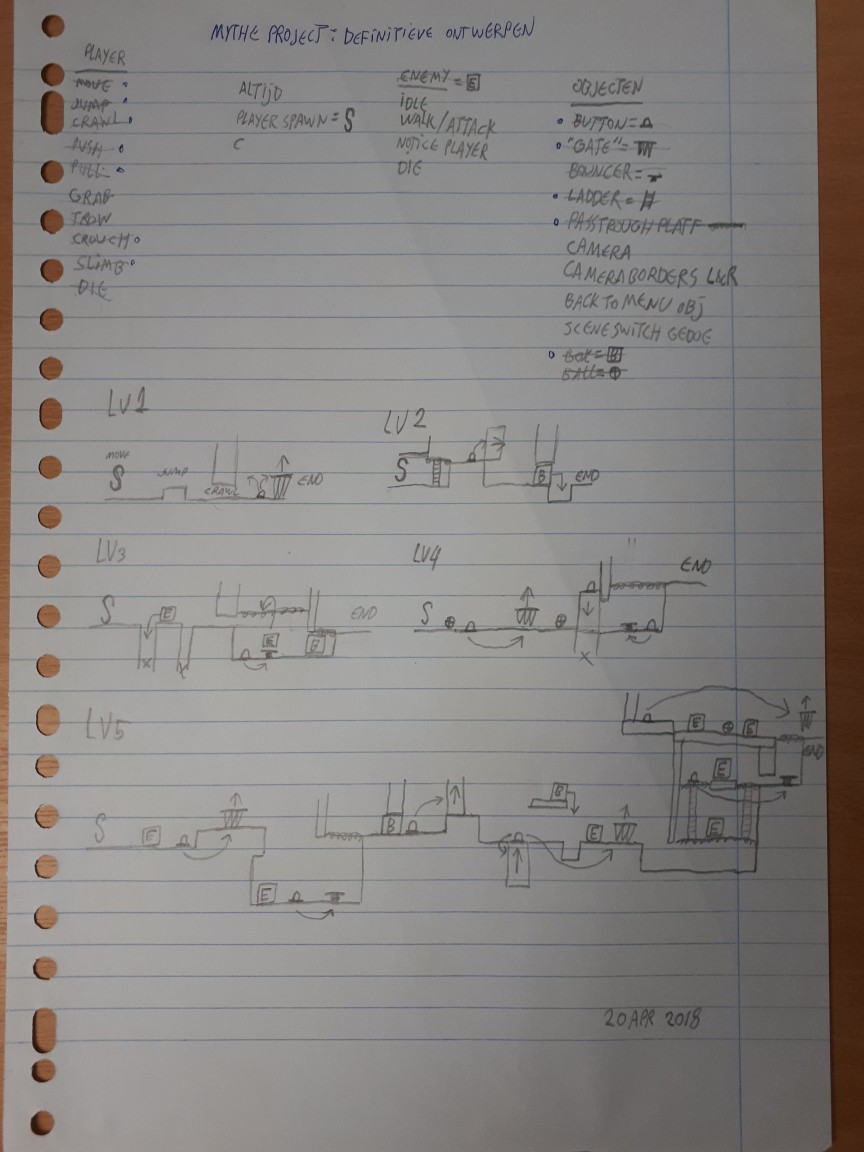 MYTHE PROJECT: DEFINITIEVE ONTWERPEN
PLAYER
MOVE
JUMP
CRAWL
PUSH
PULL
GRAB
TROW
CROUCH
SLIMB
DIE
ALTIJD
PLAYER SPAWN = S
C
ENEMY = E
IDLE
WALK/ATTACK
NOTICE PLAYER
DIE
OBJECTEN
BUTTON =
"GATE" =
BOUNCER =
LADDER =
PASSTROUGH PLATF
CAMERA
CAMERABORDERS L&R
BACK TO MENU OBJ
SCENESWITCH GEDOE
BOX = B
BALL =
LV1
MOVE
S
JUMP
CRAWL
END
LV2
S
B
END
LV3
S
E
X
X
E
B
END
LV4
S
X
END
LV5
S
E
E
B
B
E
E
E
E
E
END
20 APR 2018